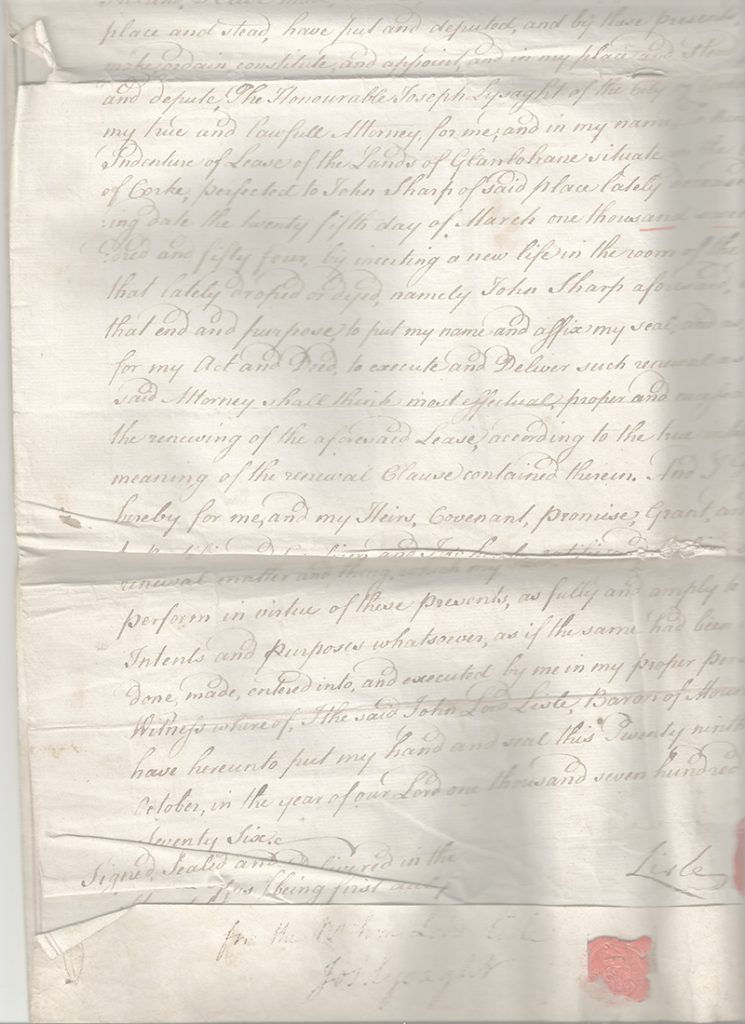 place and stead, have put and deputed, and by these presents,
make ordain constitute, and appoint, and in my place and stead
and depute, The Honourable Joseph Lysaght of the City
my true and lawfull Attorney, for me, and in my name
Indenture of Lease of the Lands of Glanbohane situate
of Corke, perfected to John Sharp of said place lately
ing date the twenty fifth day of March one thousand
dred and fifty four, by inserting a new life in the room of the
that lately droped or dyed, namely John Sharp afores
that end and purpose, to put my name and affix my seal, and as
for my Act and Deed, to execute and Deliver such renewal as
said Attorney shall think most effectual, proper and
the renewing of the aforesaid Lease, according to the true
meaning of the renewal Clause contained therein. And I
hereby for me, and my Heirs, Covenant, Promise, Grant, an
renewal matter and thing, which my
perform in virtue of these presents, as fully and amply to
Intents and purposes whatsoever, as if the same had been
done, made, entered into, and executed by me in my proper per
Witness whereof, I the said John Lord Lisle, Baron of Moun
have hereunto put my hand and seal this Twenty ninth
October, in the year of our Lord one thousand seven hundred
Seventy Six.
Signed, Sealed and Delivered in the
(being first duly
Lisle
for the
Jos Lysaght